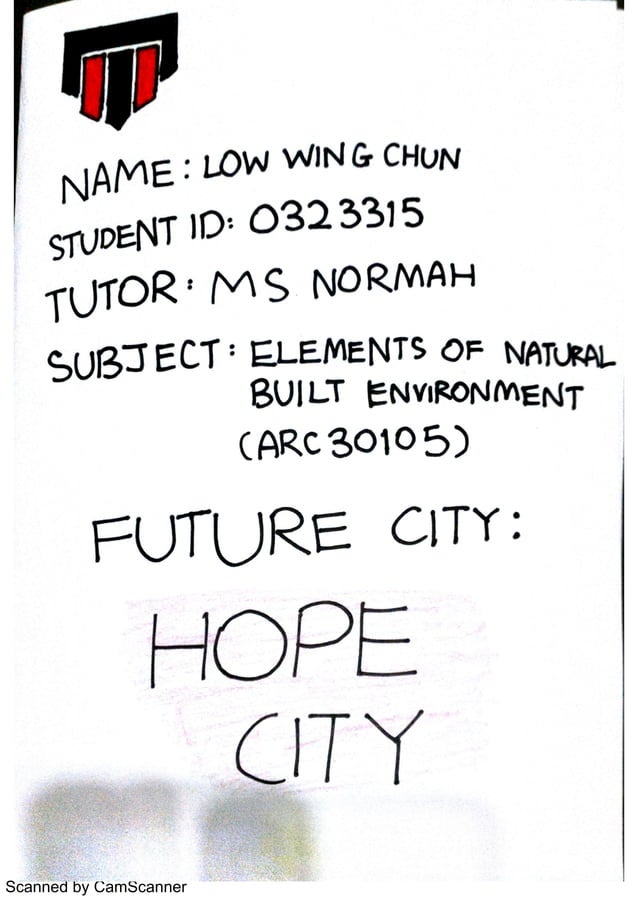 NAME: LOW WING CHUN
STUDENT ID: 0323315
TUTOR: MS NORMAH
SUBJECT: ELEMENTS OF NATURAL
BUILT ENVIRONMENT
(ARC30105)
FUTURE CITY:
HOPE
CITY
Scanned by CamScanner